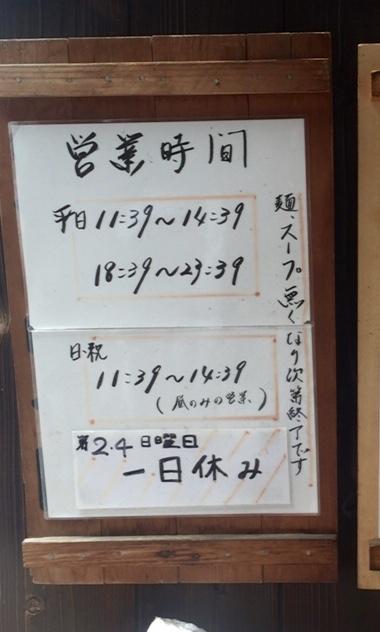 営業時間
平日 11:39～14:39
18:39～23:39
日・祝
11:39～14:39
(昼のみの営業)
第2.4日曜日
一日休み
麺、スープ無くなり次第終了です